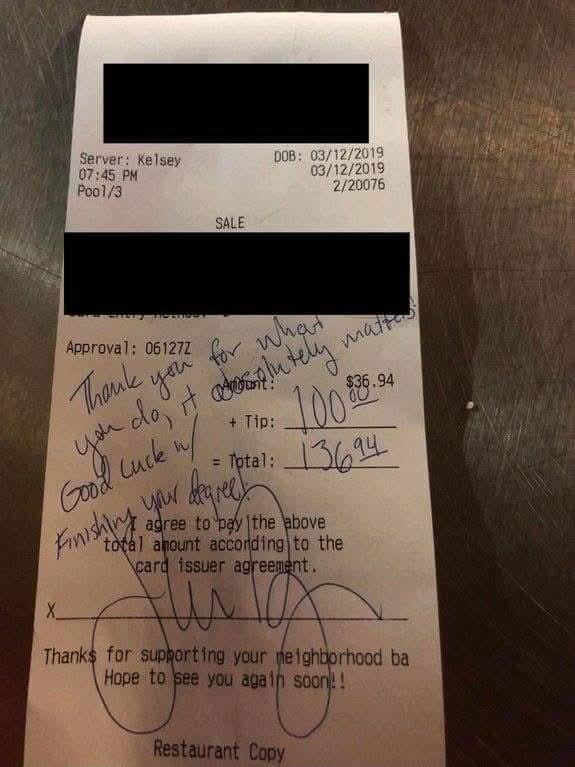 Server: Kelsey
DOB: 03/12/2019
07:45 PM
03/12/2019
Pool/3
2/20076
SALE
Approval: 06127Z
Thank you for what
you do, it absolutely matters!
Good Luck w/
Finishing your degree!
Amount: $36.94
+ Tip: 100 00
= Total: 136 94
I agree to pay the above
total amount according to the
card issuer agreement.
X
Thanks for supporting your neighborhood ba
Hope to see you again soon!!
Restaurant Copy